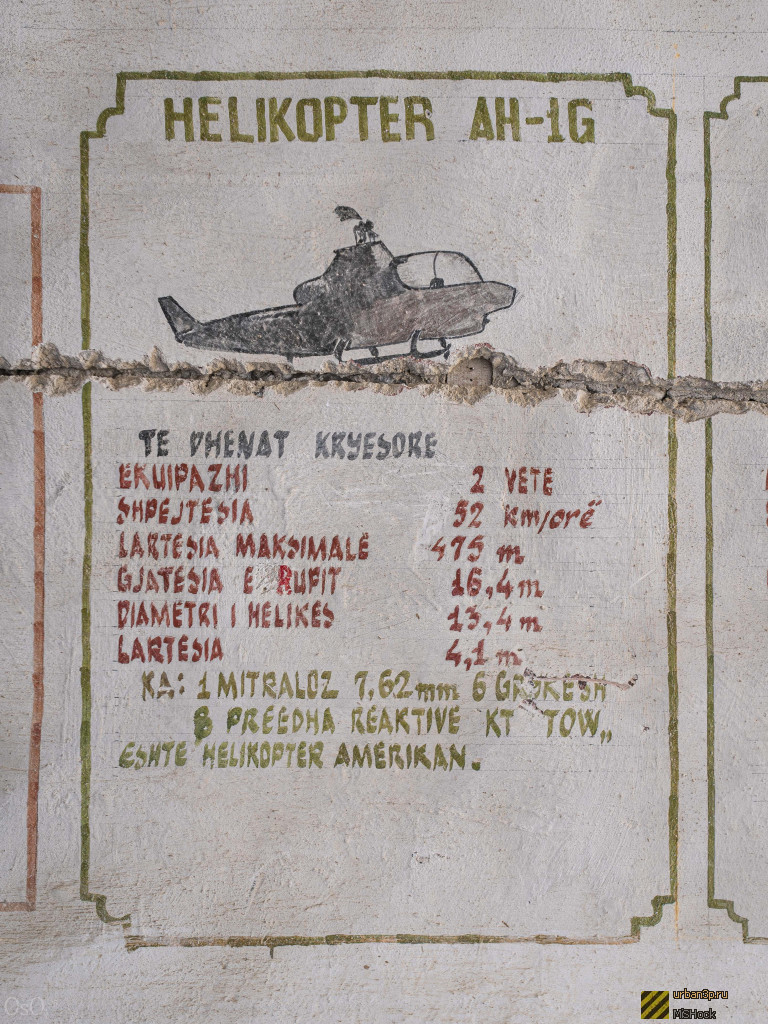 HELIKOPTER AH-1G
TE DHENAT KRYESORE
EKUIPAZHI 2 VETE
SHPEJTESIA 52 km/orë
LARTESIA MAKSIMALE 475 m
GJATESIA E RUPIT 16,4 m
DIAMETRI I HELIKES 13,4 m
LARTESIA 4,1 m
KA: 1 MITRALOZ 7,62 mm 6 GRYKESH
8 PREEDHA REAKTIVE KT TOW„
ESHTE HELIKOPTER AMERIKAN.
urban3p.ru
MiSHock